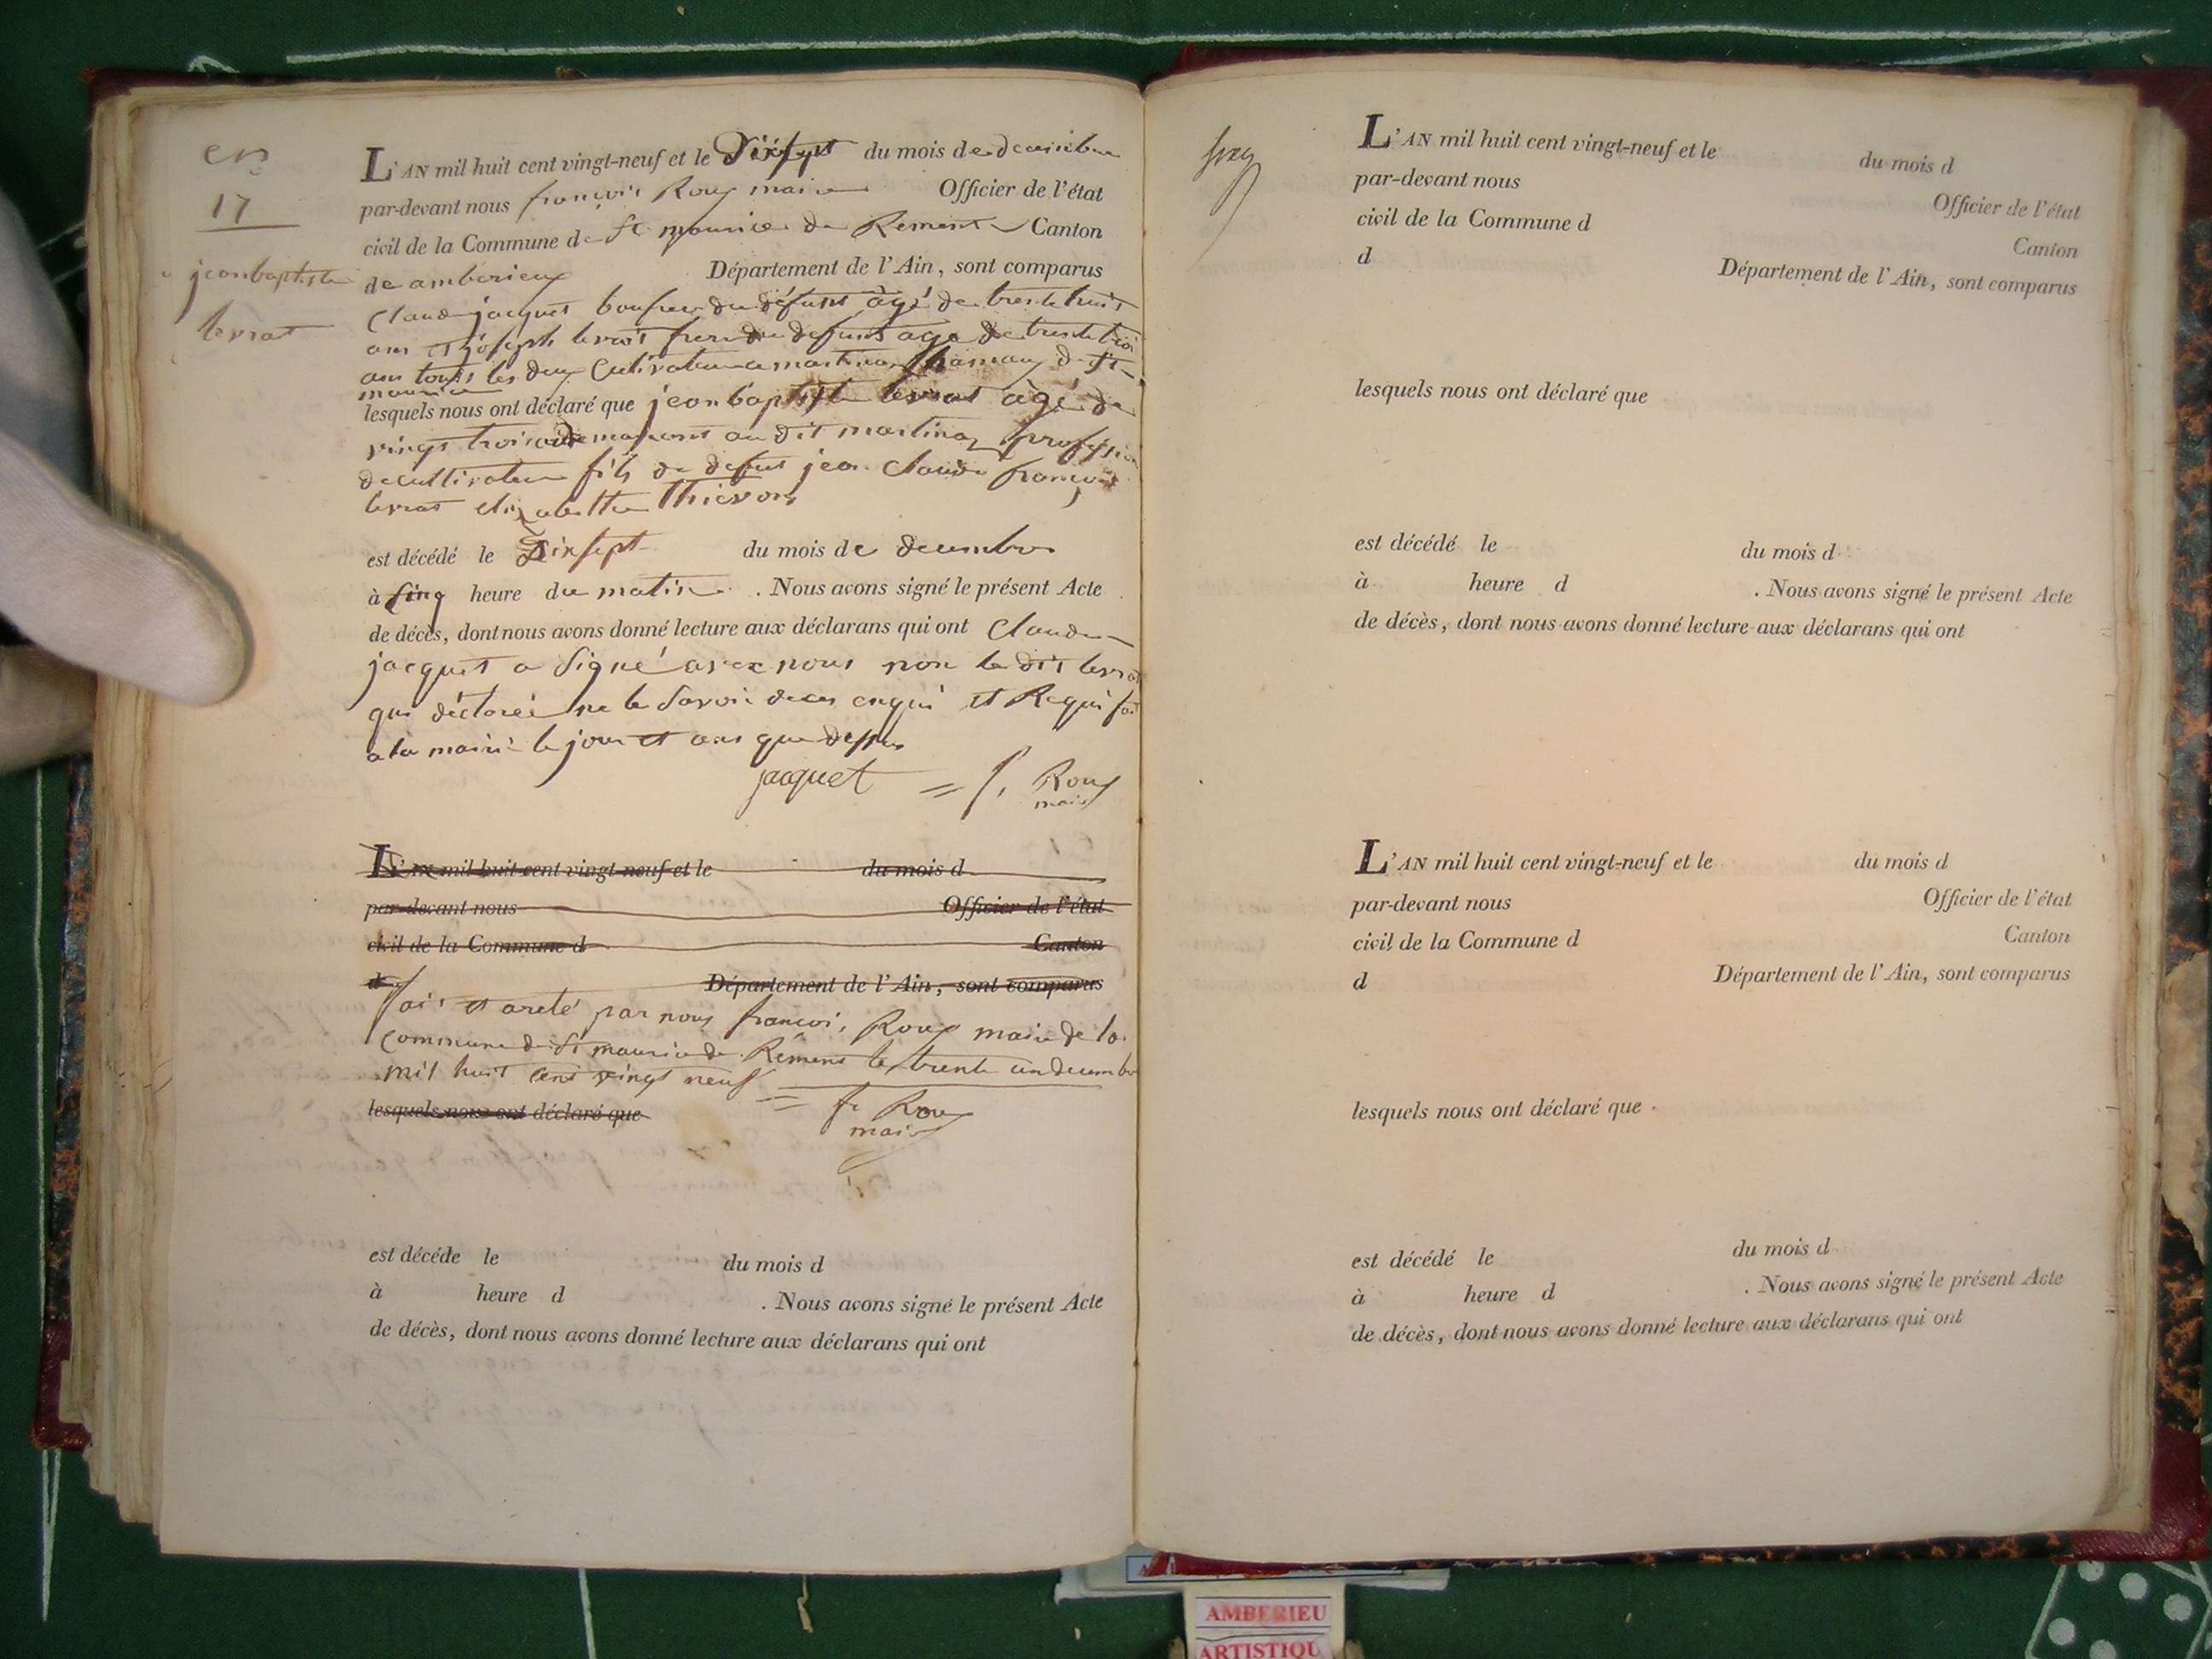 en
17
jeanbaptiste
levrat
L'AN mil huit cent vingt-neuf et le Dixsept du mois de decembre
par-devant nous françois Roux maire Officier de l'état
civil de la Commune de St maurice de Remens Canton
de amberieux Département de l'Ain, sont comparus
Claude jacquet baufrere du défunt âgé de trente huit
ans et joseph levrat frere du defunt age de trente troi
ans touts les deux Cultivateur a martinaz hamaux de St
maurice
lesquels nous ont déclaré que jeanbaptiste levrat âgé de
vingt trois ans demeurant au dit martinaz profession
de cultivateur fils de defunt jean Claude françois
levrat elizabette Thievon
est décédé le Dixsept du mois de decembre
à sinq heure du matin . Nous avons signé le présent Acte
de décès, dont nous avons donné lecture aux déclarans qui ont Claude
jacquet a signé avex nous non le dit levrat
qui déclareé ne le savoir de ces enqui et Requi fai
a la mairie le jour et ans que dessus
jacquet = f. Roux
maire
L'AN mil huit cent vingt-neuf et le du mois d
par-devant nous Officier de l'état
civil de la Commune d Canton
d Département de l'Ain, sont comparus
fait et areté par nous françois Roux maire de la
Commune de St maurice de Rémens le trente un decembre
mil huit cent vingt neuf
lesquels nous ont déclaré que = fr Roux
maire
est décédé le du mois d
à heure d . Nous avons signé le présent Acte
de décès, dont nous avons donné lecture aux déclarans qui ont
L'AN mil huit cent vingt-neuf et le du mois d
par-devant nous Officier de l'état
civil de la Commune d Canton
d Département de l'Ain, sont comparus
lesquels nous ont déclaré que
est décédé le du mois d
à heure d . Nous avons signé le présent Acte
de décès, dont nous avons donné lecture aux déclarans qui ont
L'AN mil huit cent vingt-neuf et le du mois d
par-devant nous Officier de l'état
civil de la Commune d Canton
d Département de l'Ain, sont comparus
lesquels nous ont déclaré que
est décédé le du mois d
à heure d . Nous avons signé le présent Acte
de décès, dont nous avons donné lecture aux déclarans qui ont
AMBERIEU
ARTISTIQU